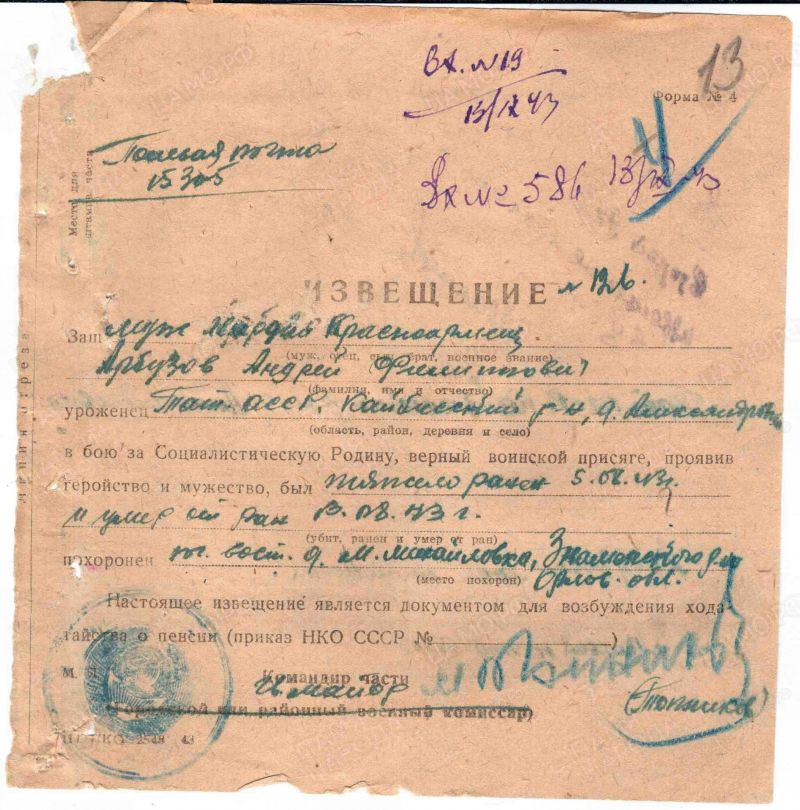 13
Вх. №19
13/IX 43
Форма № 4
4
Место для
штампа части
Полевая почта
15305
Вх № 586 13/IX 43
ИЗВЕЩЕНИЕ № 126.
Ваш муж Красноармеец
(муж, отец, сын, брат, военное звание)
Арбузов Андрей Филиппович
(фамилия, имя и отчество)
уроженец Тат. АССР, Кайбицкий р-н, д. Александровка
(область, район, деревня и село)
в бою за Социалистическую Родину, верный воинской присяге, проявив
геройство и мужество, был тяжело ранен 5.08.43г.
и умер от ран 13.08.43 г.
(убит, ранен и умер от ран)
похоронен вост. д. М. Михайловка, Знаменского р-на
(место похорон) Орлов. обл.
Настоящее извещение является документом для возбуждения хода-
тайства о пенсии (приказ НКО СССР № )
М. П.
Командир части
Гв майор
(Городской или районный военный комиссар)
линия отреза